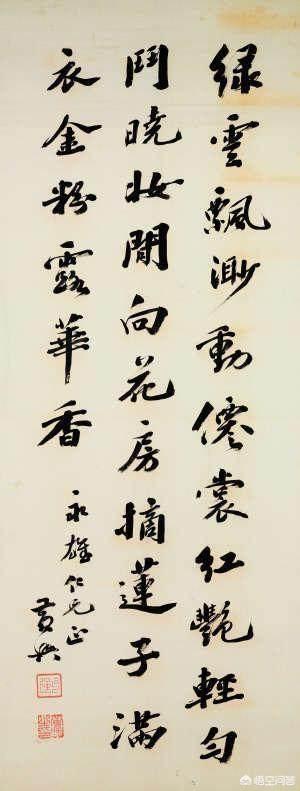 緑雲飄渺動僊裳紅艷輕勻
鬥曉妝閒向花房摘蓮子滿
衣金粉露華香
永雄仁兄正
黃興
悟空问答